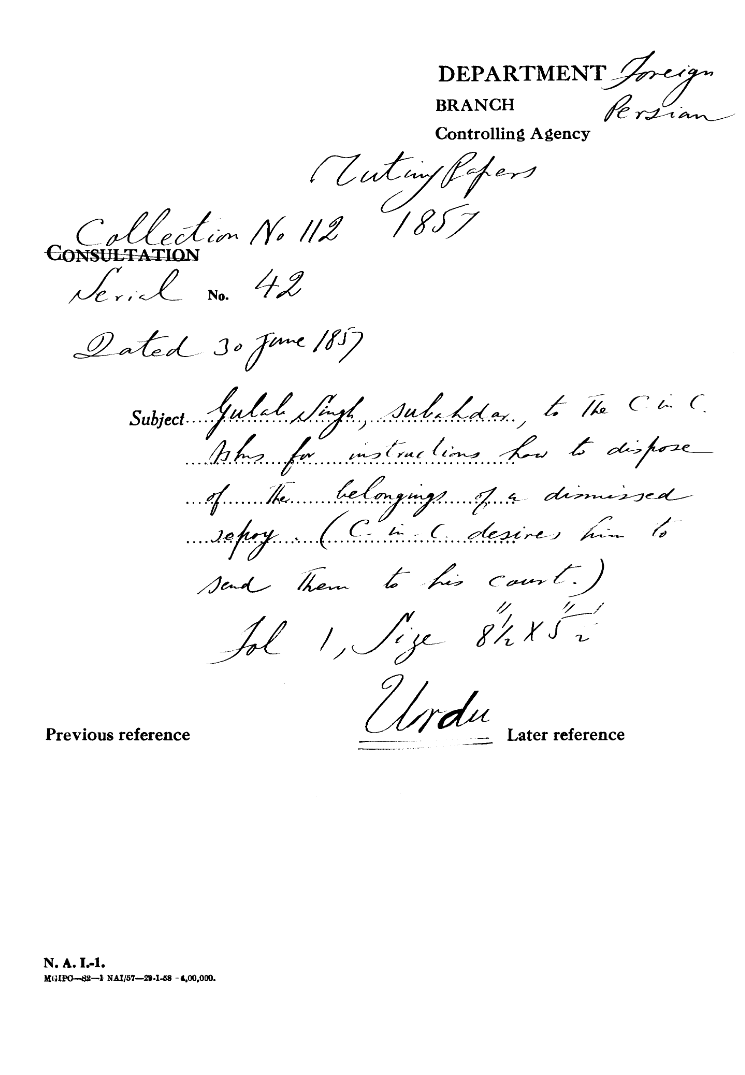 DEPARTMENT Foreign
BRANCH Persian
Controlling Agency
Mutiny Papers
Collection No 112 1857
CONSULTATION
Serial No. 42
Dated 30 June 1857
Subject Gulab Singh, subahdar, to the C in C.
Asks for instructions how to dispose
of the belongings of a dismissed
sepoy. (C. in C desires him to
send them to his court.)
Fol 1, Size 8½" X 5½"
Urdu
Previous reference Later reference
N. A. I.-1.
MGIPC—82—1 NAI/57—29-1-58 —4,00,000.